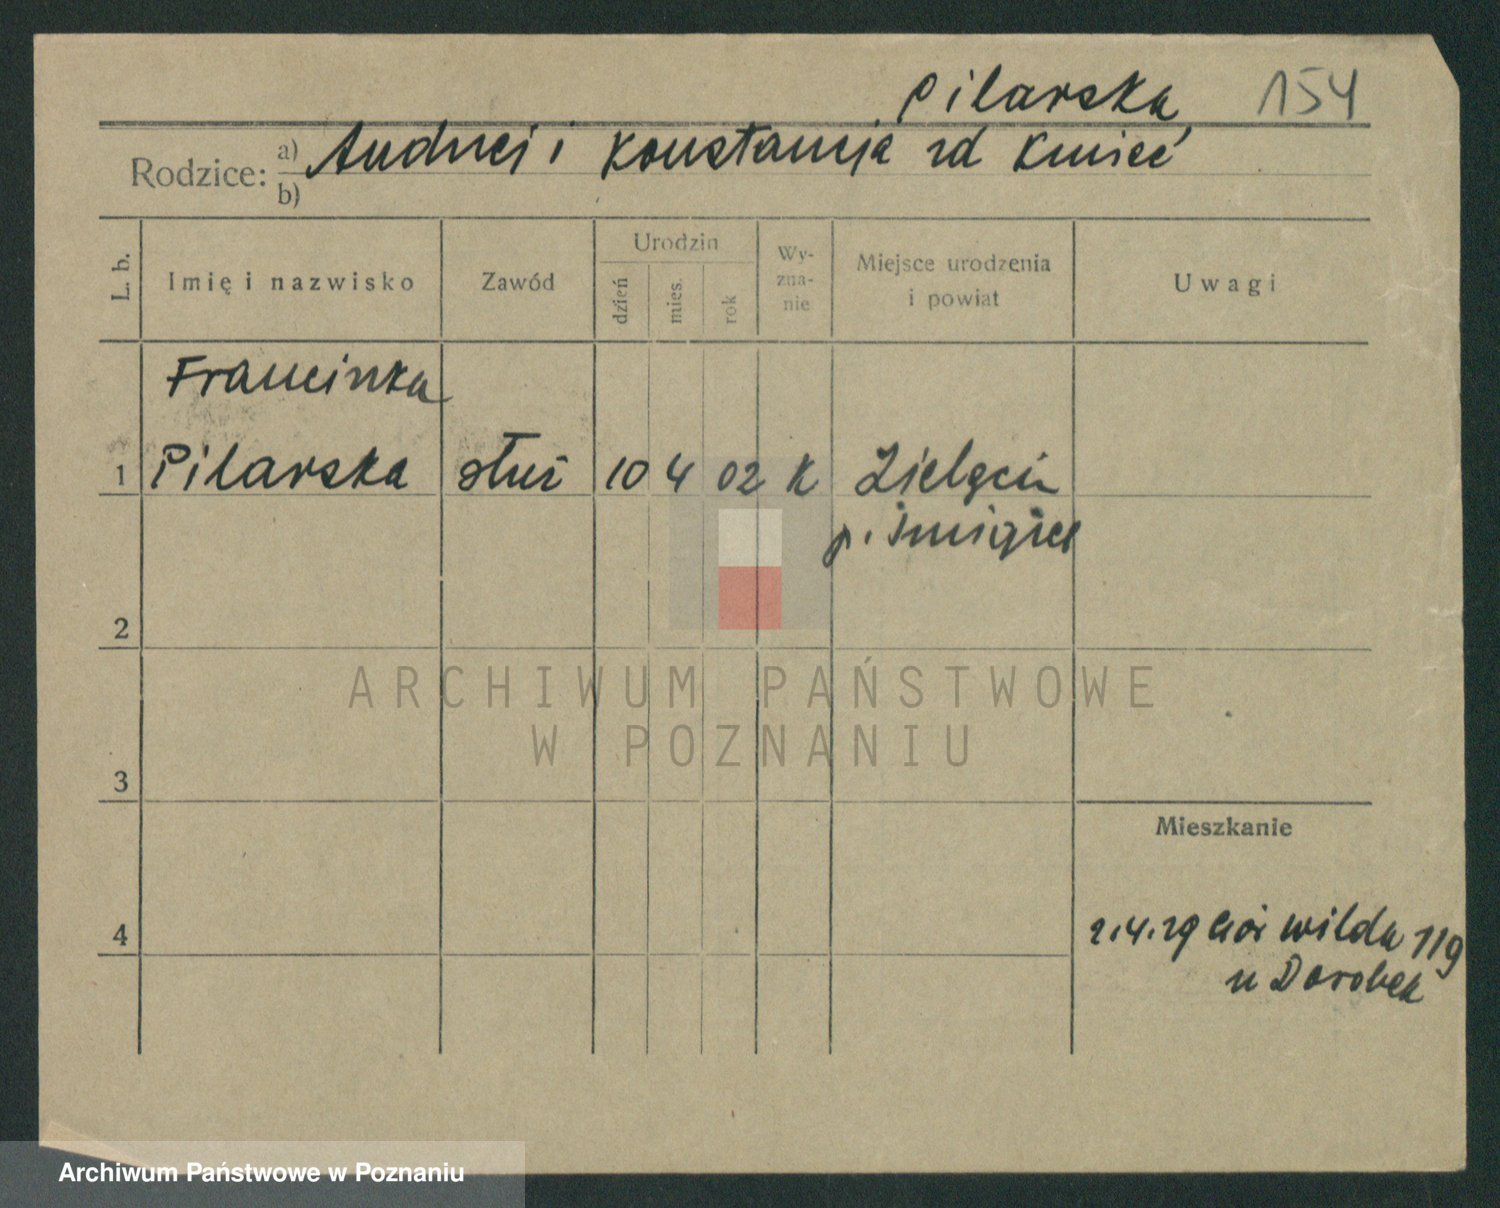 Pilarska 154
Rodzice: a) Andrzej i Konstancja zd Kmieć
b)
L. b. Imię i nazwisko Zawód Urodzin dzień mies. rok Wy-zna-nie Miejsce urodzenia i powiat Uwagi
Francinka
1 Pilarska służ 10 4 02 K Zielęcin
p. Śmigiel
2
3
Mieszkanie
4
2.4.29 Gór Wilda 119
u Dorobek
ARCHIWUM PAŃSTWOWE
W POZNANIU
Archiwum Państwowe w Poznaniu